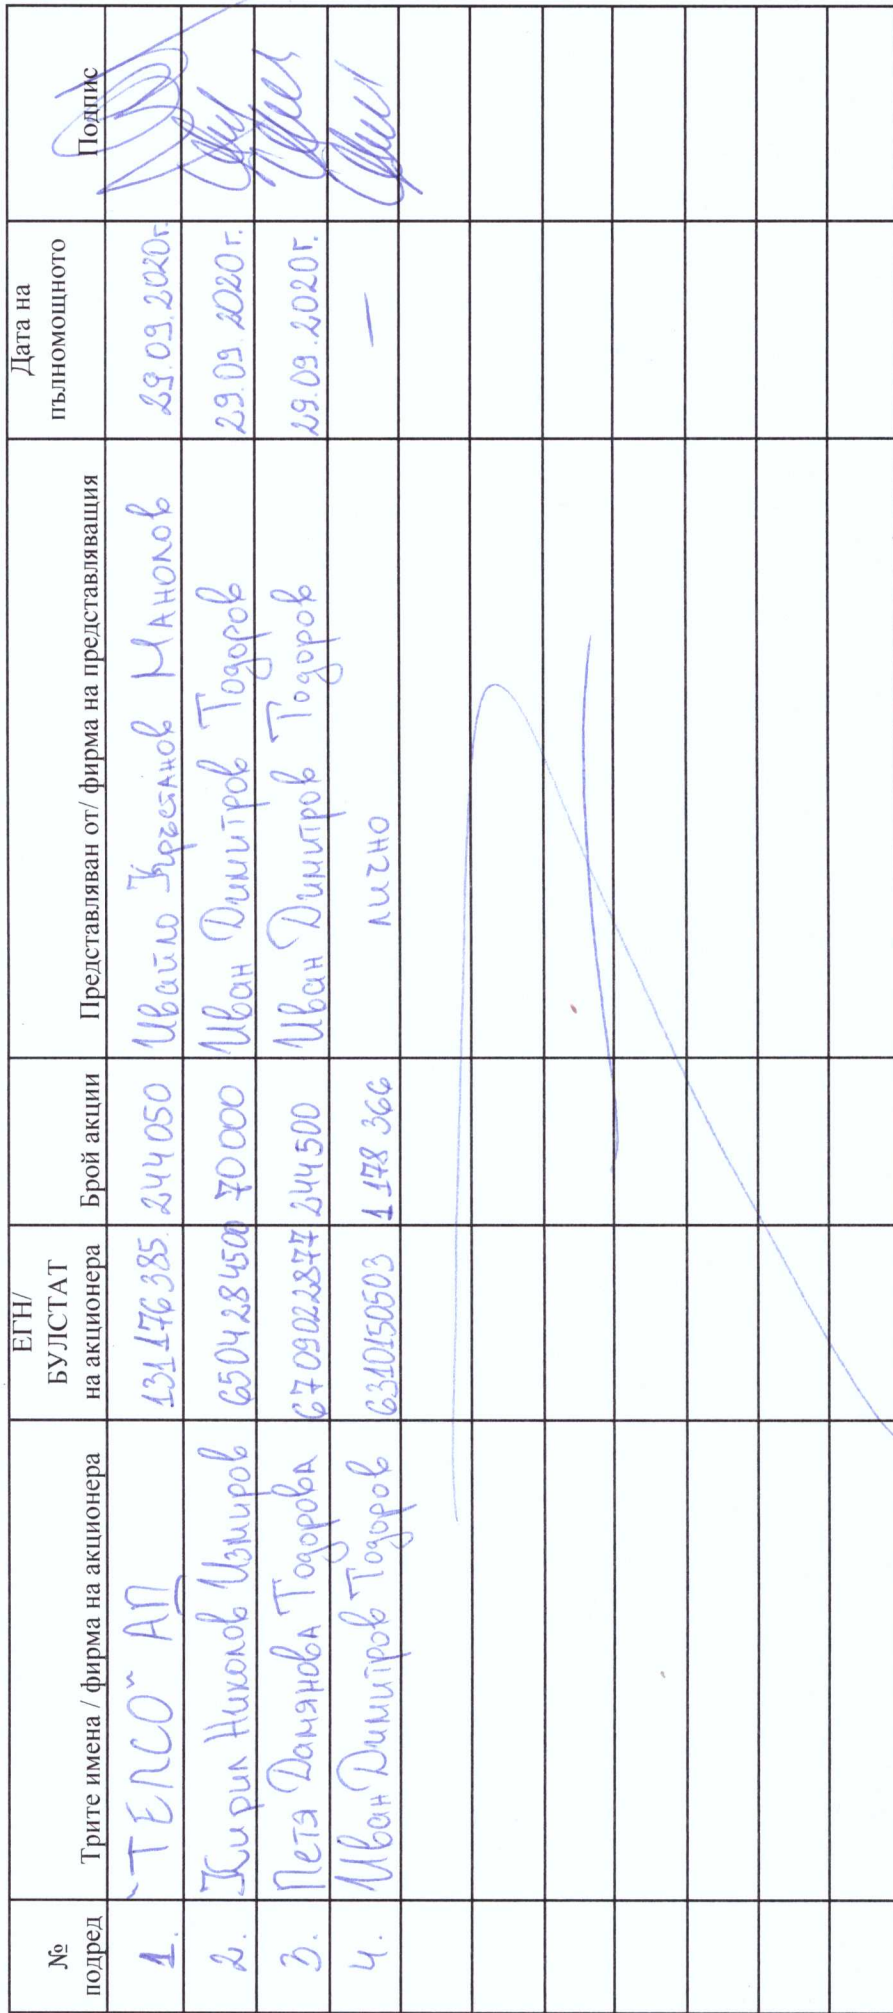 № подред Трите имена / фирма на акционера ЕГН/ БУЛСТАТ на акционера Брой акции Представляван от/ фирма на представляващия Дата на пълномощното Подпис
1. "ТЕЛСО" АД 131176385 244050 Ивайло Кръстанов Манолов 29.09.2020г.
2. Кирил Николов Измиров 6504284500 70000 Иван Димитров Тодоров 29.09.2020г.
3. Петя Дамянова Тодорова 6709022877 244500 Иван Димитров Тодоров 29.09.2020г.
4. Иван Димитров Тодоров 6310150503 1 178 366 лично —